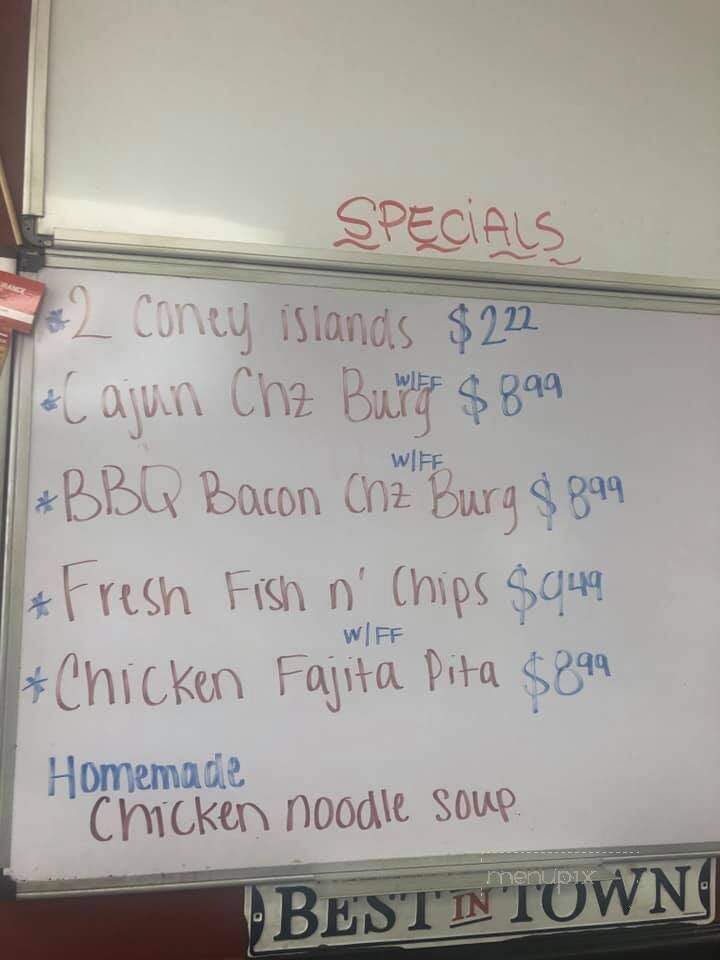 SPECIALS
*2 Coney islands $2.22
W/FF
*Cajun Chz Burg $8.99
W/FF
*BBQ Bacon Chz Burg $8.99
*Fresh Fish n' Chips $9.49
W/FF
*Chicken Fajita Pita $8.99
Homemade
Chicken noodle soup
menupix
BEST IN TOWN